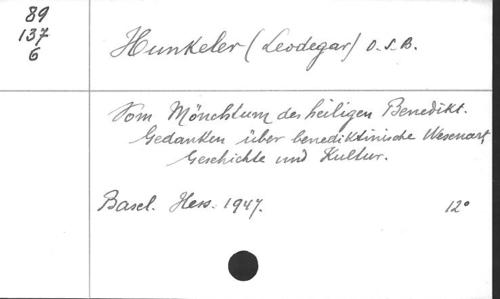 89
137
6
Hunkeler (Leodegar) O.S.B.
Vom Mönchtum des heiligen Benedikt.
Gedanken über benediktinische Wesenart,
Geschichte und Kultur.
Basel. Hess. 1947. 12°